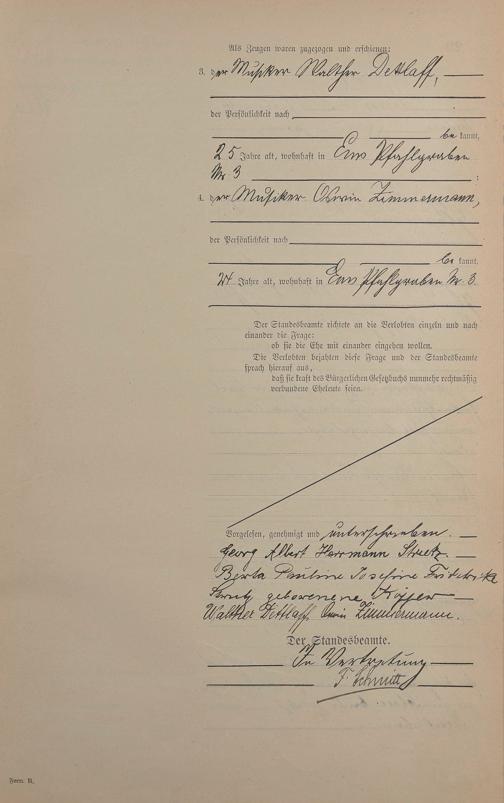 Als Zeugen waren zugezogen und erschienen:
3. der Musiker Walther Dettlaff,
der Persönlichkeit nach
be kannt,
25 Jahre alt, wohnhaft in Ems Pfahlgraben
Nr 3 ;
4. der Musiker Oswin Zimmermann,
der Persönlichkeit nach
be kannt,
24 Jahre alt, wohnhaft in Ems Pfahlgraben Nr. 3.
Der Standesbeamte richtete an die Verlobten einzeln und nach
einander die Frage:
ob sie die Ehe mit einander eingehen wollen.
Die Verlobten bejahten diese Frage und der Standesbeamte
sprach hierauf aus,
daß sie kraft des Bürgerlichen Gesetzbuchs nunmehr rechtmäßig
verbundene Eheleute seien.
Vorgelesen, genehmigt und unterschrieben.
Georg Albert Herrmann Streetz
Berta Pauline Josefine Fridericka
geborenene
Walther Dettlaff, Oswin Zimmermann.
Der Standesbeamte.
In Vertretung
F. Schmitt
Form. B.